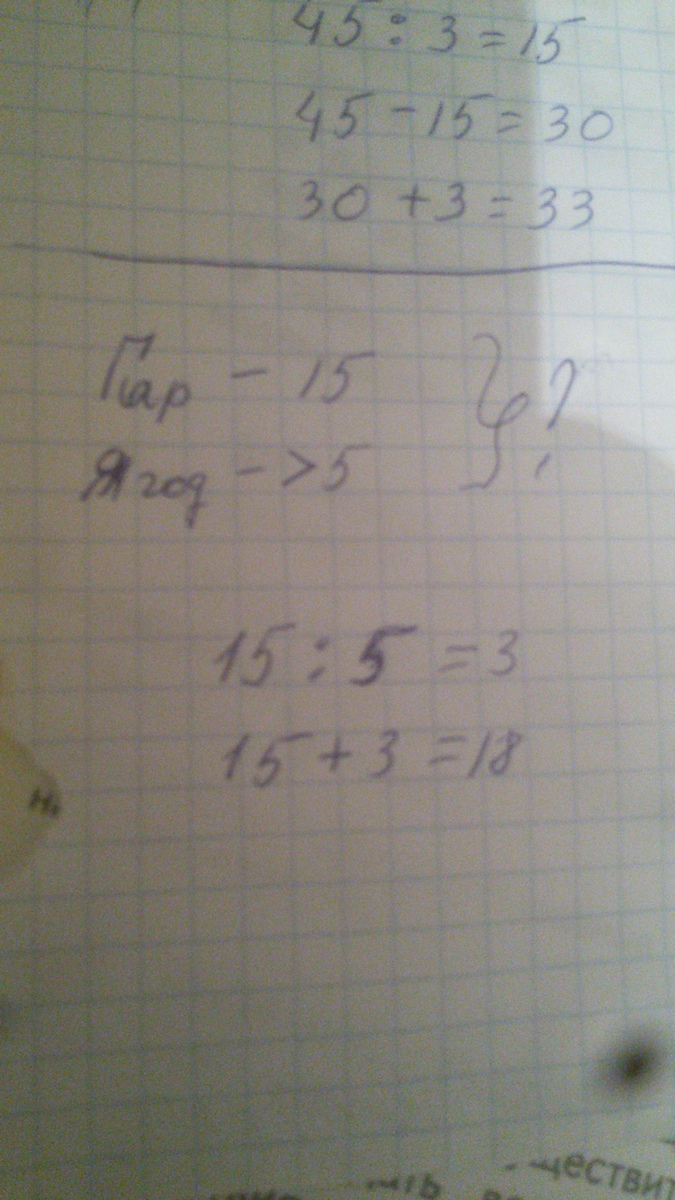 45 : 3 = 15
45 - 15 = 30
30 + 3 = 33
Пар - 15 } ?
Ягод - > 5
15 : 5 = 3
15 + 3 = 18